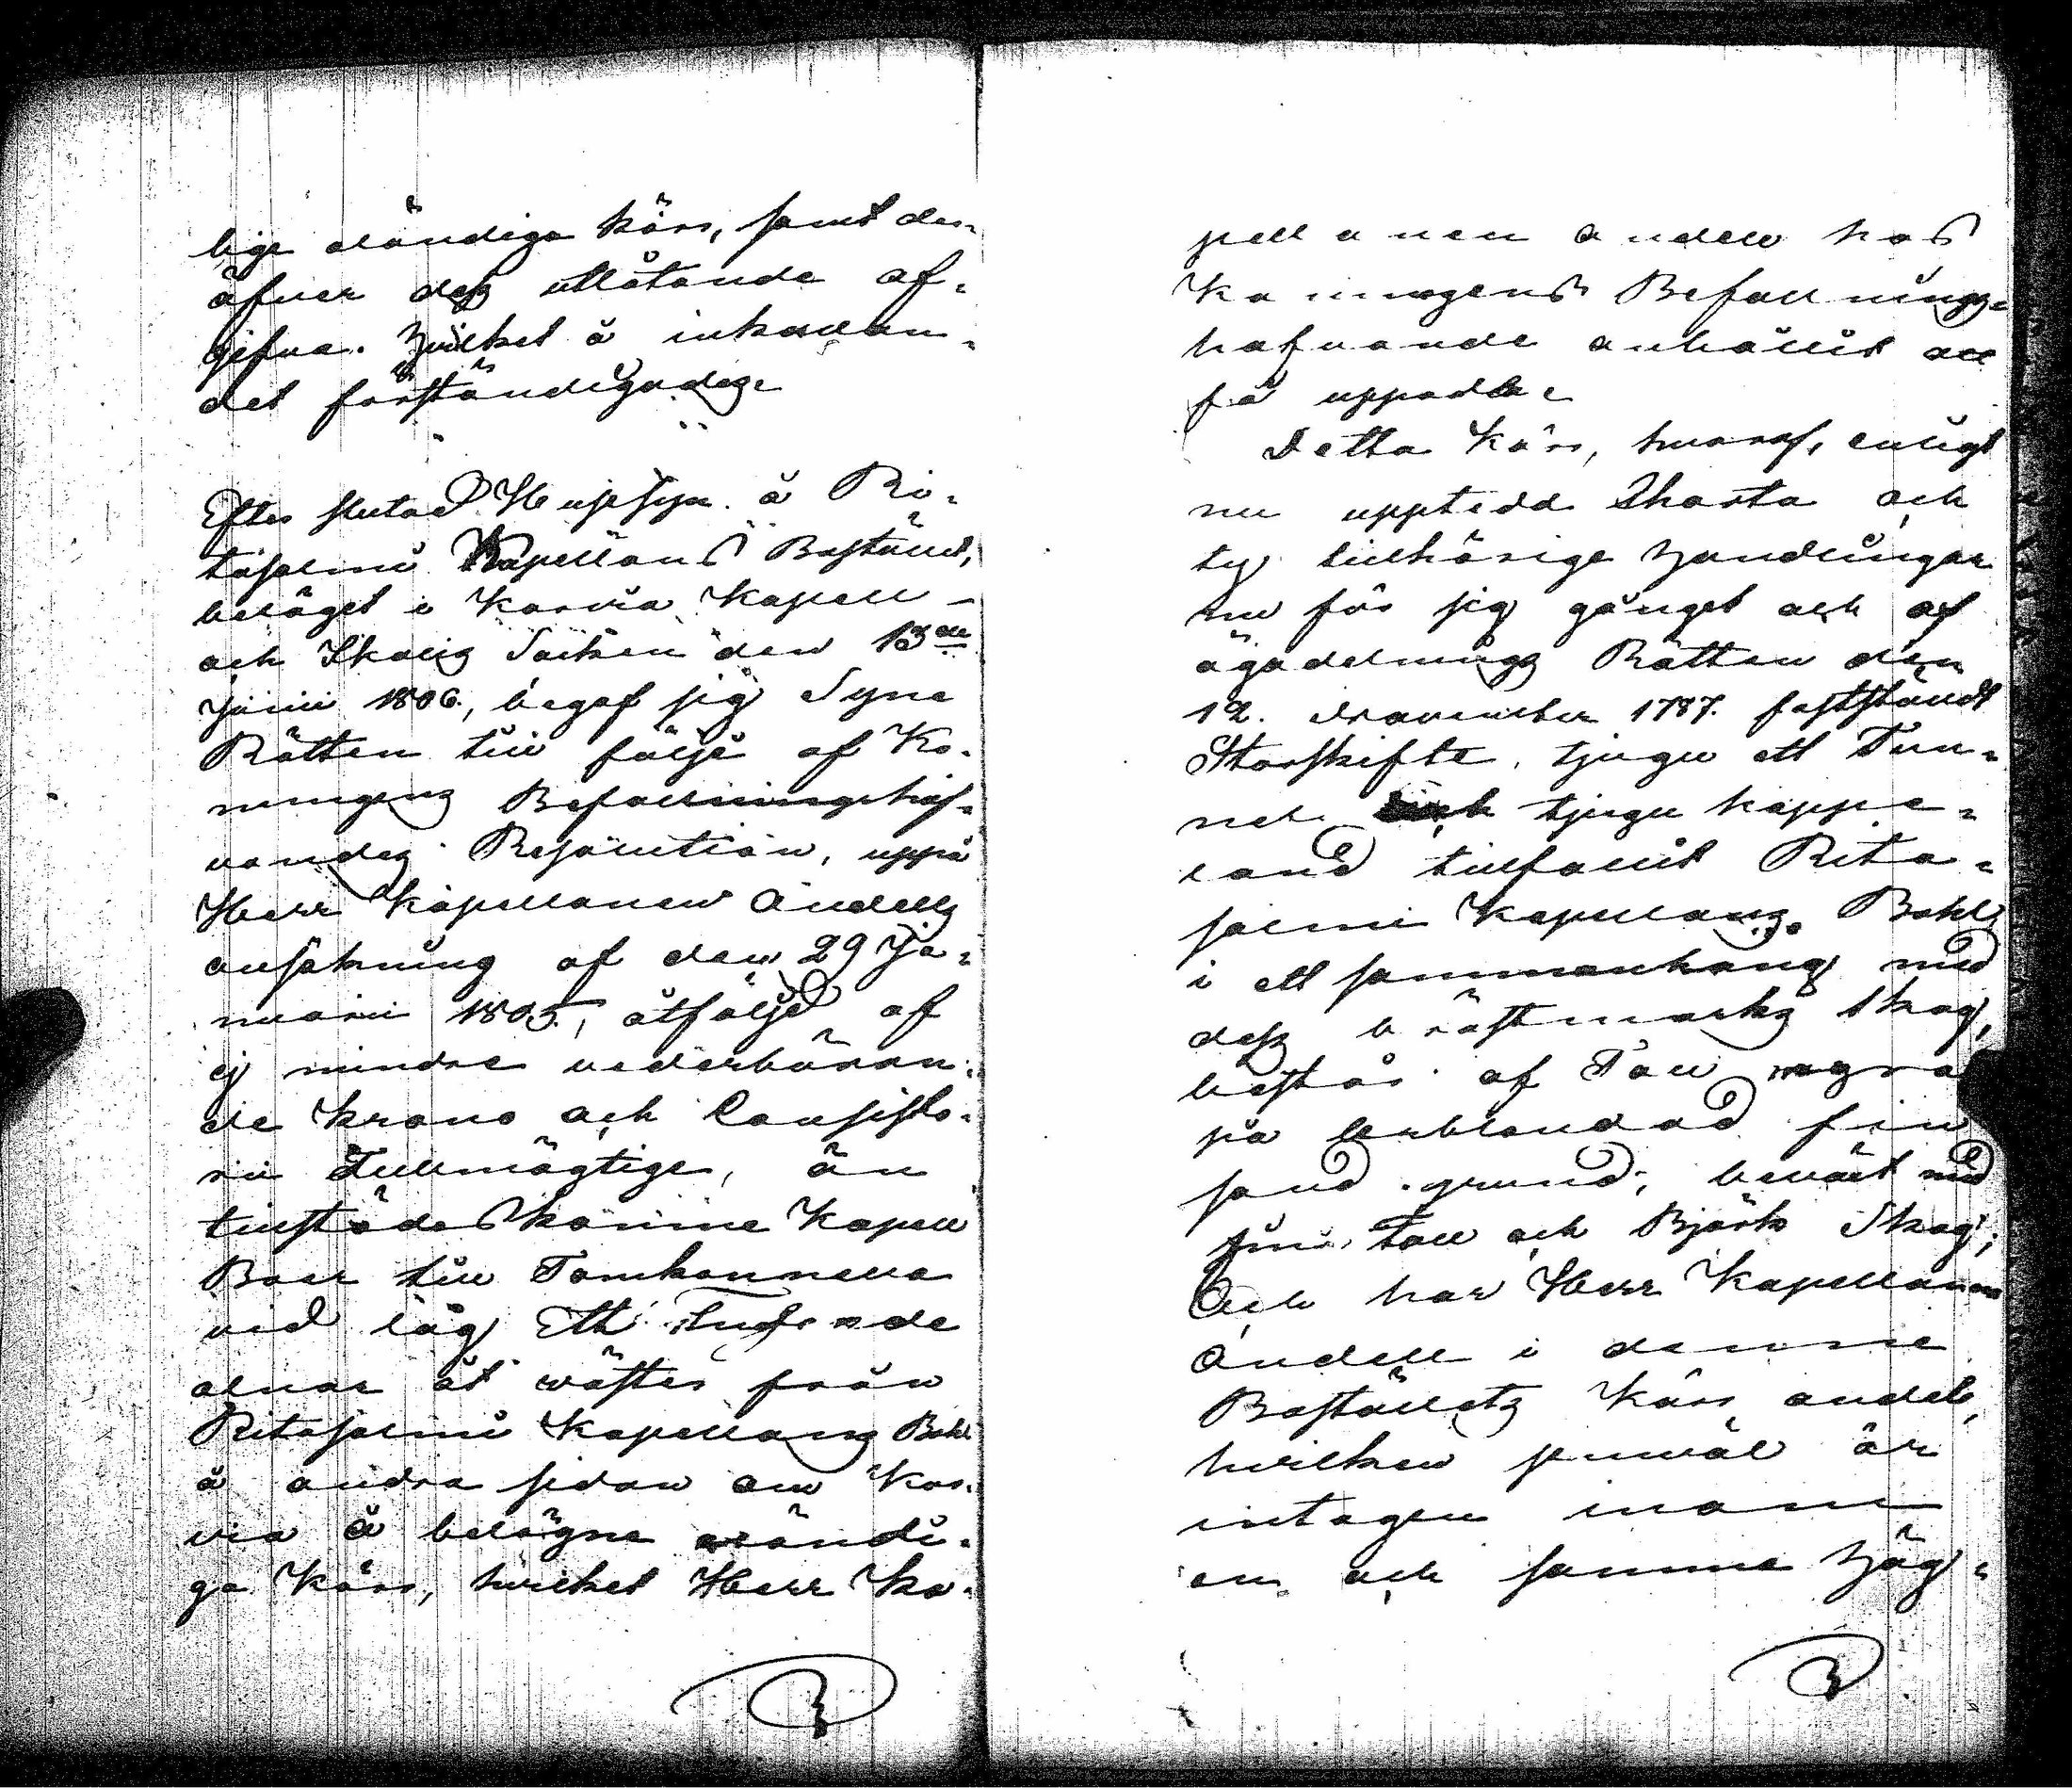 lige oländiga kärr, samt der-
öfver dess utlåtande af-
gifva. Hvilket å inkallan-
det förständigades

Efter slutad Husesyn å Ri-
tasalmi Kapellans Boställe,
beläget i Korvia Kapell
och Ikalis Socken den 13de
Junii 1806, begaf sig Syne
Rätten till följe af Ko-
nungens Befallningshaf-
vandes Resolution, uppå
Herr Kapellanen Andells
ansökning af den 29 Ja-
nuarii 1805, åtföljd af
ej mindre vederböran-
de Krono och Consisto-
rii Fullmägtige, än
tillstädeskomne Kapell
Boer till Tomkonneva
vid låg Ett tusende
alnar åt väster från
Ritasalmi Kapellans Bohl
å andra sidan om Kor-
via å belägne oländi-
ga Kärr, hvilket Herr Ka-
pellanen Andell hos
Konungens Befallnings-
hafvande anhållit att
få uppodla.
Detta Kärr, hvaraf, enligt
nu uppteedd Charta och
ty tillhörige Handlingar
nu för sig gånget och af
ägodelnings Rätten den
12. November 1787. fastställdt
Storskifte, tjugu ett Tun-
ne tjugu kappe-
land tillfallit Rita-
salmi Kapellans Bohl
i ett sammanhang med
dess växtmarks skog,
består af
på lerblandad fin
sand grund, beväxt med
små Tall och Björk Skog;
Och har Herr Kapellanen
Andell i denne
Boställets Kärr andel,
hvilken jemväl är
intagen inom
en och samma Häg-